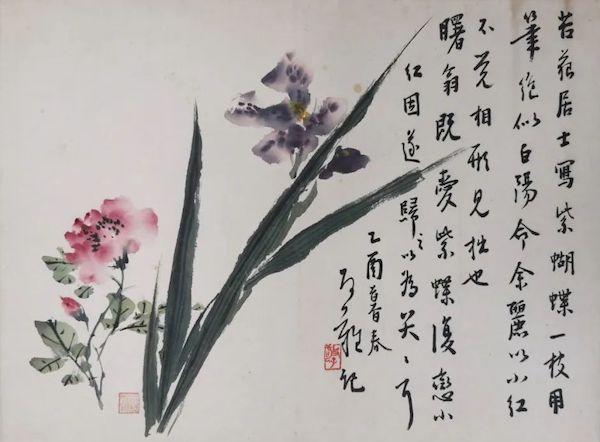 居士寫紫蝴蝶一枝用
筆絶似白陽命余麗以小紅
不覺相形見拙也
曙翁既愛紫蝶復戀小
紅因遂歸之以為笑〻耳
乙酉春
記